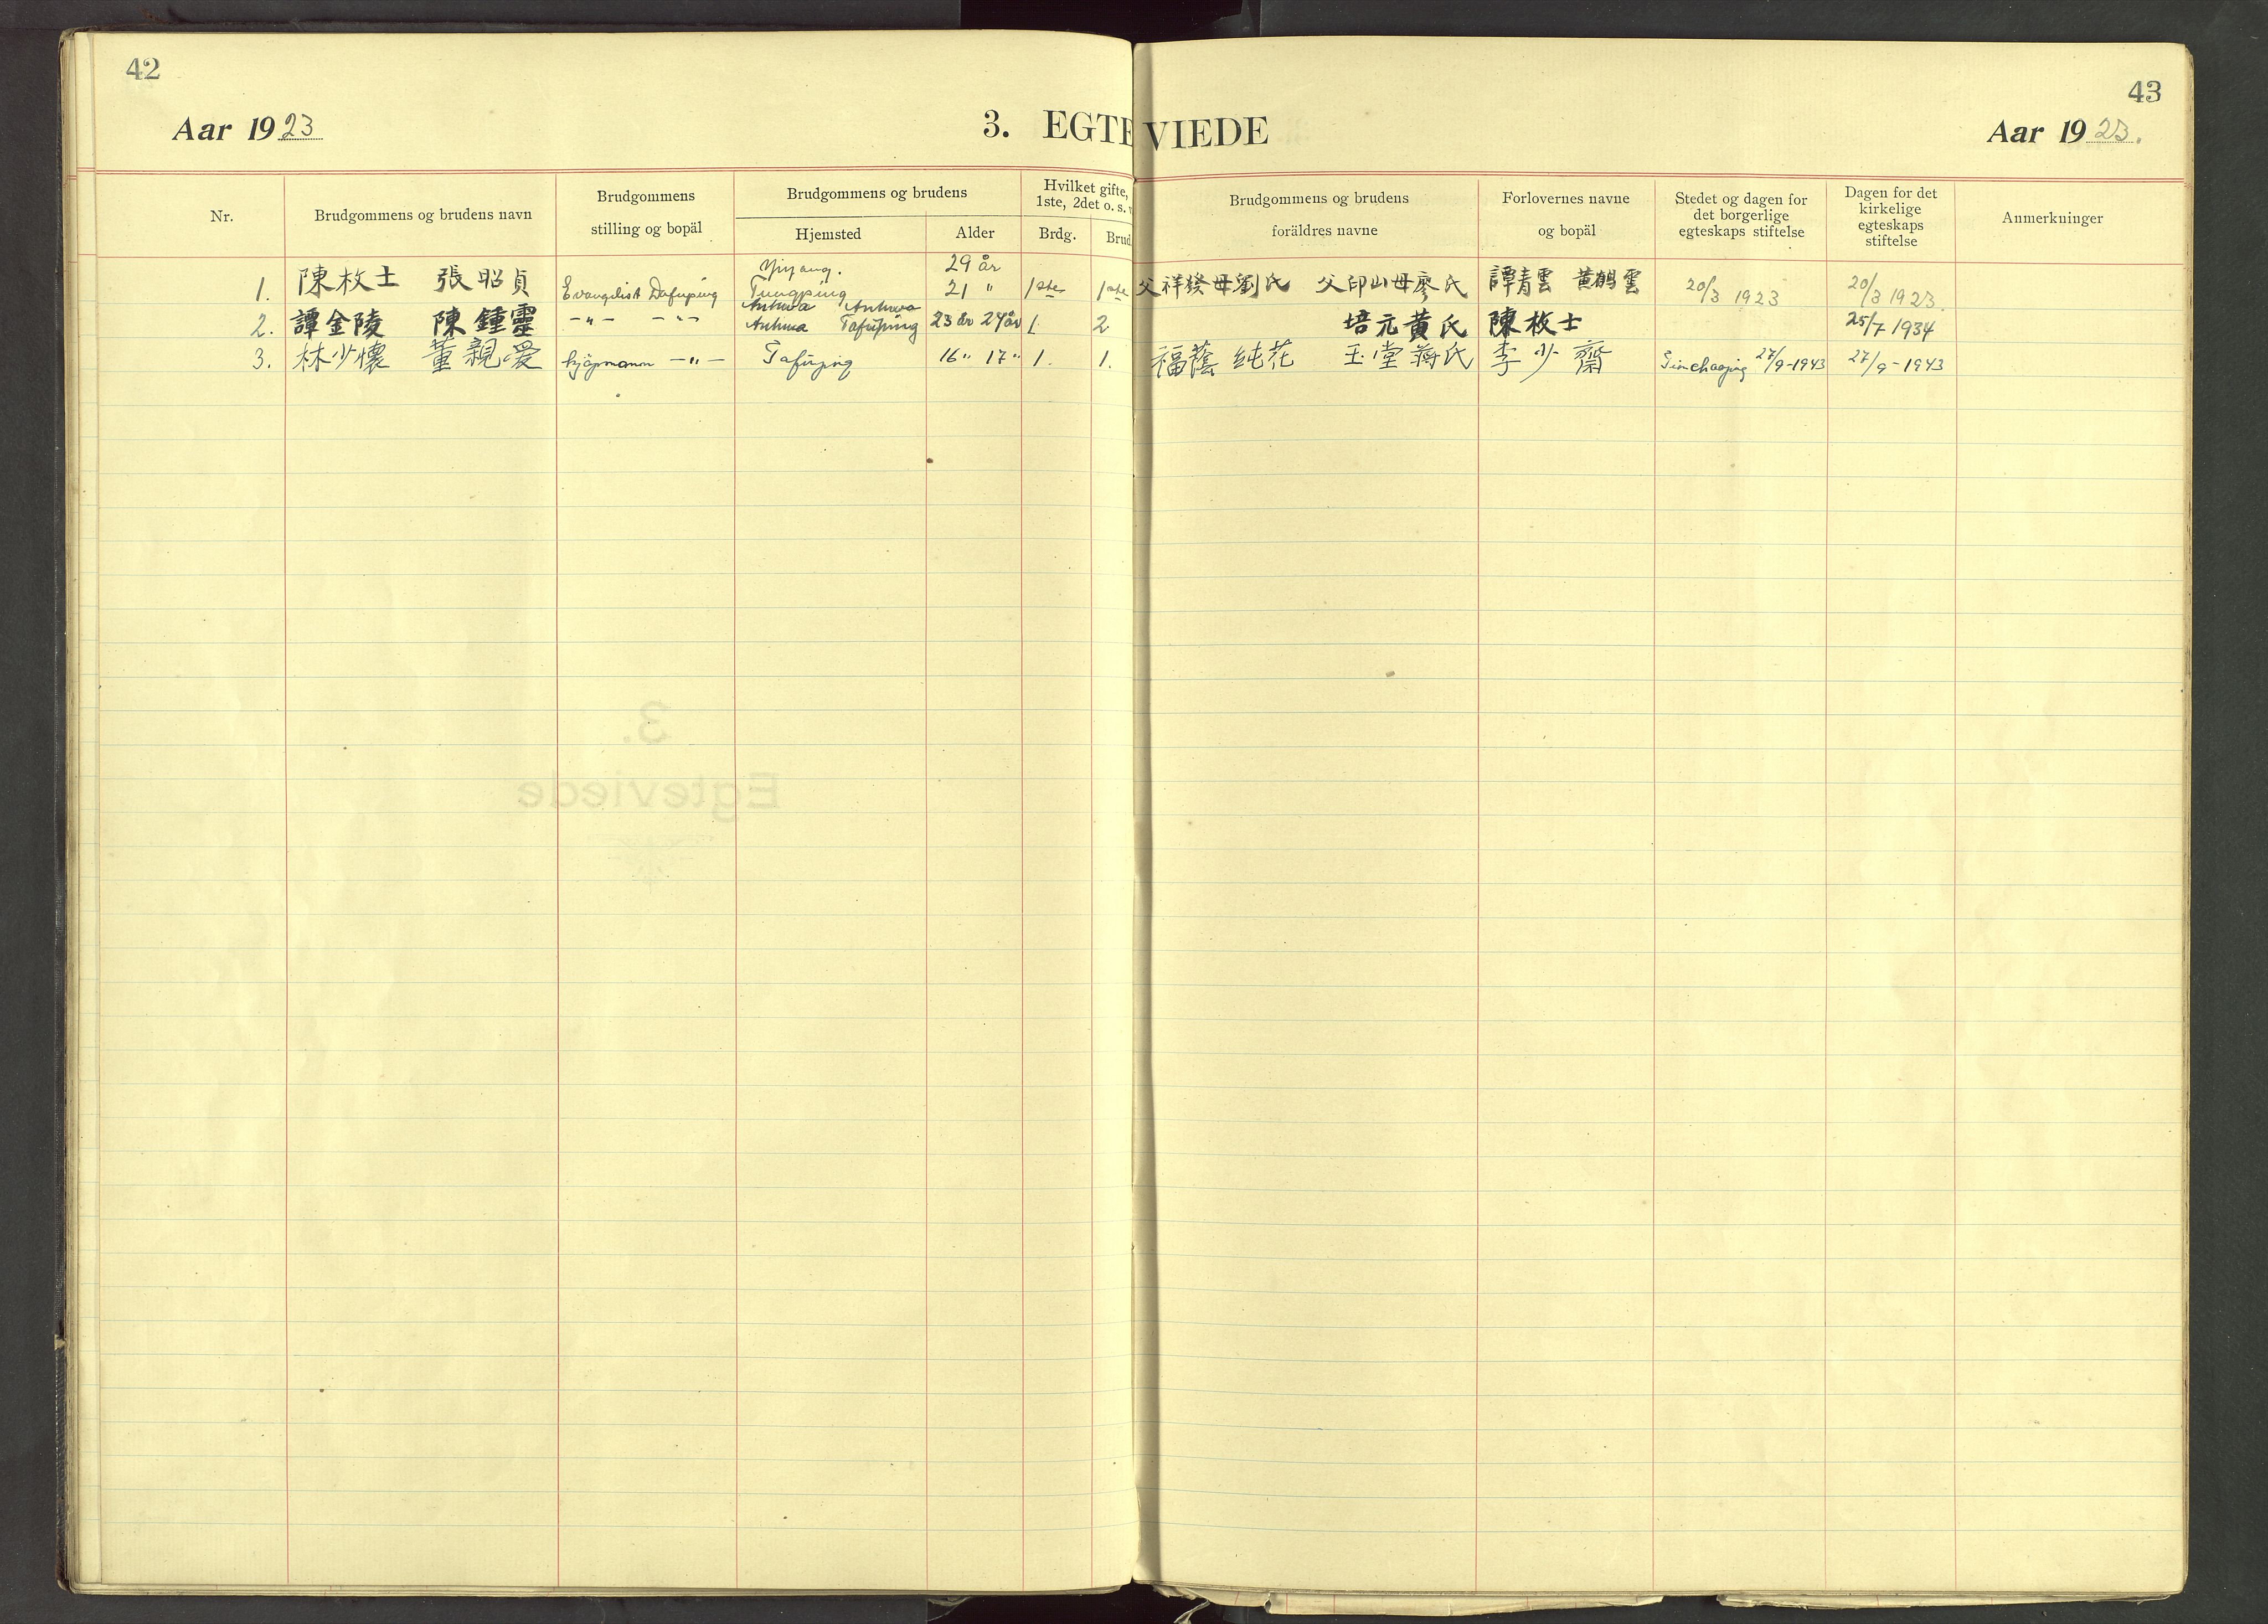 42
Aar 1923
3. EGTEVIEDE
43
Aar 1923.
Nr.
Brudgommens og brudens navn
Brudgommens
stilling og bopäl
Brudgommens og brudens
Hjemsted
Alder
Hvilket gifte,
1ste, 2det o. s. v
Brdg.
Brud
Brudgommens og brudens
foräldres navne
Forlovernes navne
og bopäl
Stedet og dagen for
det borgerlige
egteskaps stiftelse
Dagen for det
kirkelige
egteskaps
stiftelse
Anmerkninger
Yiyang. 29 år
1. 陳枚士 張昭貞 Evangelist Dafuping Tungping 21 " 1ste 1ste 父祥發母劉氏 父印山母廖氏 譚青雲 黃鶴雲 20/3 1923 20/3 1923
Anhwa Anhwa
2. 譚金陵 陳鍾靈 -"- -"- Anhwa Tafuping 23 år 24 år 1. 2 培元黃氏 陳枚士 25/7 1934
3. 林少懷 董親愛 kjøpmann -"- Tafuping 16" 17" 1. 1. 福蔭 純花 玉堂蔣氏 李少齋 27/9-1943 27/9-1943
3.
Egteviede